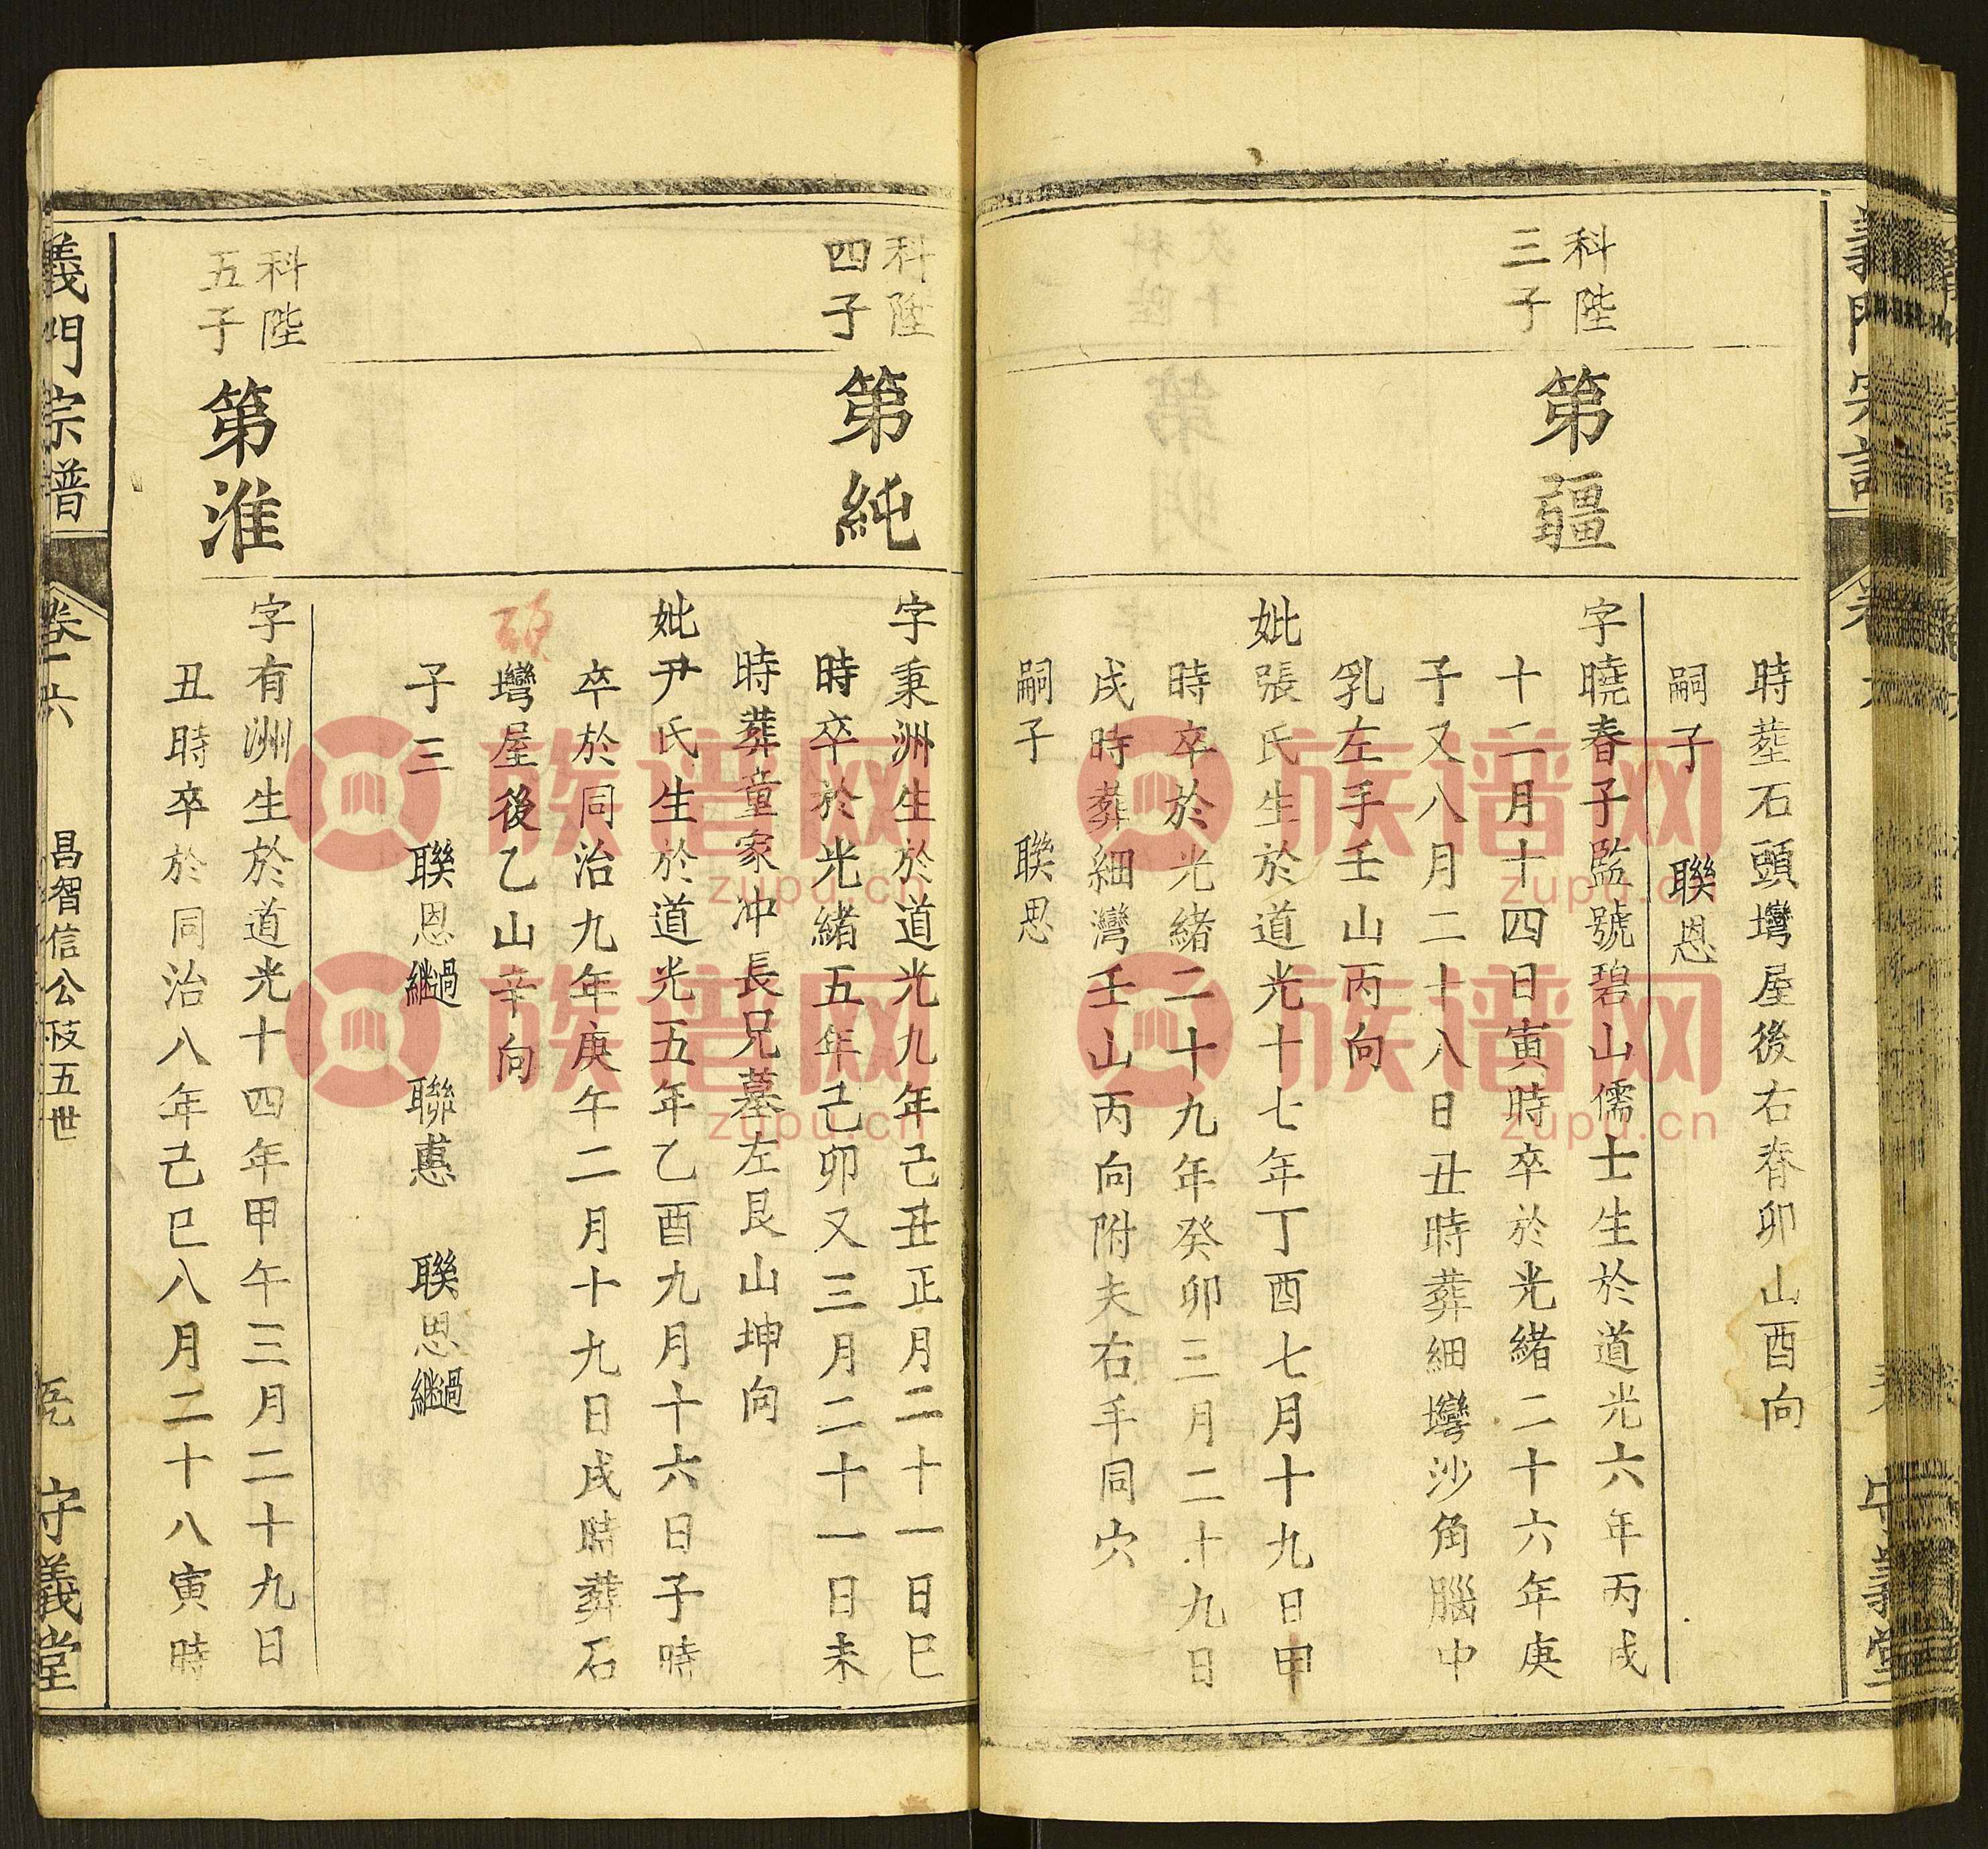 時塟石頭塆屋後右脊卯山酉向
嗣子 聯恩
科陞
三子
第疆
字曉春子監號碧山儒士生於道光六年丙戌
十二月十四日寅時卒於光緒二十六年庚
子又八月二十八日丑時葬細塆沙角腦中
乳左手壬山丙向
妣張氏生於道光十七年丁酉七月十九日甲
時卒於光緒二十九年癸卯三月二十九日
戌時葬細灣壬山丙向附夫右手同穴
嗣子 聯思
科陞
四子
第純
字秉洲生於道光九年己丑正月二十一日巳
時卒於光緒五年己卯又三月二十一日未
時葬童家冲長兄墓左艮山坤向
妣尹氏生於道光五年乙酉九月十六日子時
卒於同治九年庚午二月十九日戌時葬石
塆屋後乙山辛向
子三 聯恩繼過 聯蕙 聯思繼過
科陞
五子
第淮
字有洲生於道光十四年甲午三月二十九日
丑時卒於同治八年己巳八月二十八寅時
義門宗譜
卷一六
昌智信公歧五世
守義堂
族谱网
zupu.cn
族谱网
zupu.cn
族谱网
zupu.cn
族谱网
zupu.cn